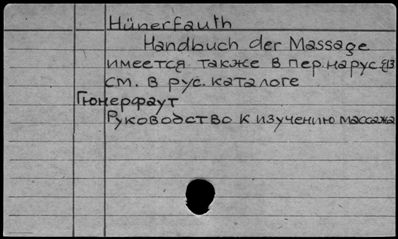 Hünerfauth
Handbuch der Massage
имеется также в пер. на рус. яз
см. в рус. каталоге
Гюнерфаут
Руководство к изучению массажа